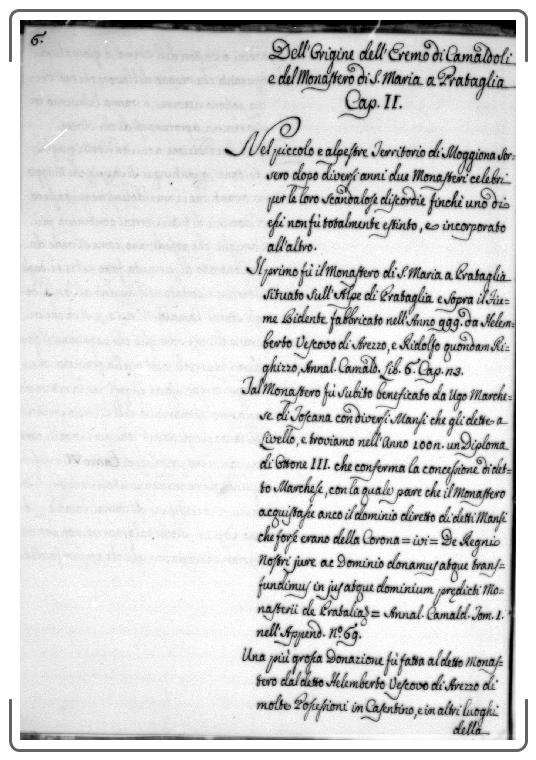 6.
Dell'Origine dell'Eremo di Camaldoli
e del Monastero di S. Maria a Prataglia
Cap. II.
Nel piccolo e alpestre Territorio di Moggiona Sor=
sero dopo diversi anni due Monasteri celebri
per le loro scandalose discordie finchè uno di
essi non fù totalmente estinto, e incorporato
all'altro.
Il primo fù il Monastero di S. Maria a Prataglia
Situato Sull'Alpe di Prataglia e Sopra il Fiu=
me Bidente fabbricato nell'Anno 999. da Helem=
berto Vescovo di Arezzo, e Ridolfo quondam Ri=
ghizzo, Annal. Camald. Lib. 6. Cap. n3.
Tal Monastero fù Subito beneficato da Ugo Marche=
se di Toscana con diversi Mansi che gli dette a
Livello, e troviamo nell'Anno 1002. un Diploma
di Ottone III. che conferma la concessione di det=
to Marchese, con la quale pare che il Monastero
acquistasse anco il dominio diretto di detti Mansi
che forse erano della Corona = ivi = De Regnio
Nostri jure ac Dominio donamus atque trans=
fundimus in jus atque dominium prędicti Mo=
nasterii de Pratalia = Annal. Camald. Tom. 1.
nell'Append. N.º 69.
Una più grossa Donazione fù fatta al detto Monas=
tero dal detto Helemberto Vescovo di Arezzo di
molte Possessioni in Casentino, e in altri luoghi
della